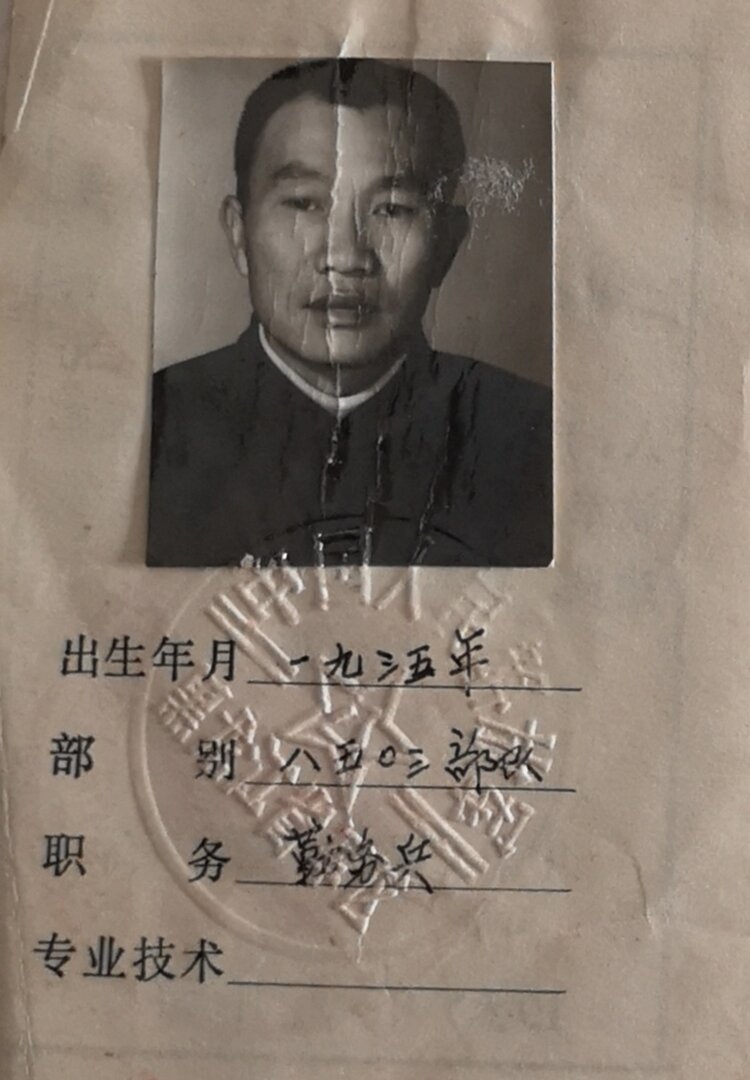 中国人民
出生年月 一九三五年
部别 八五〇三部队
职务 勤务兵
专业技术